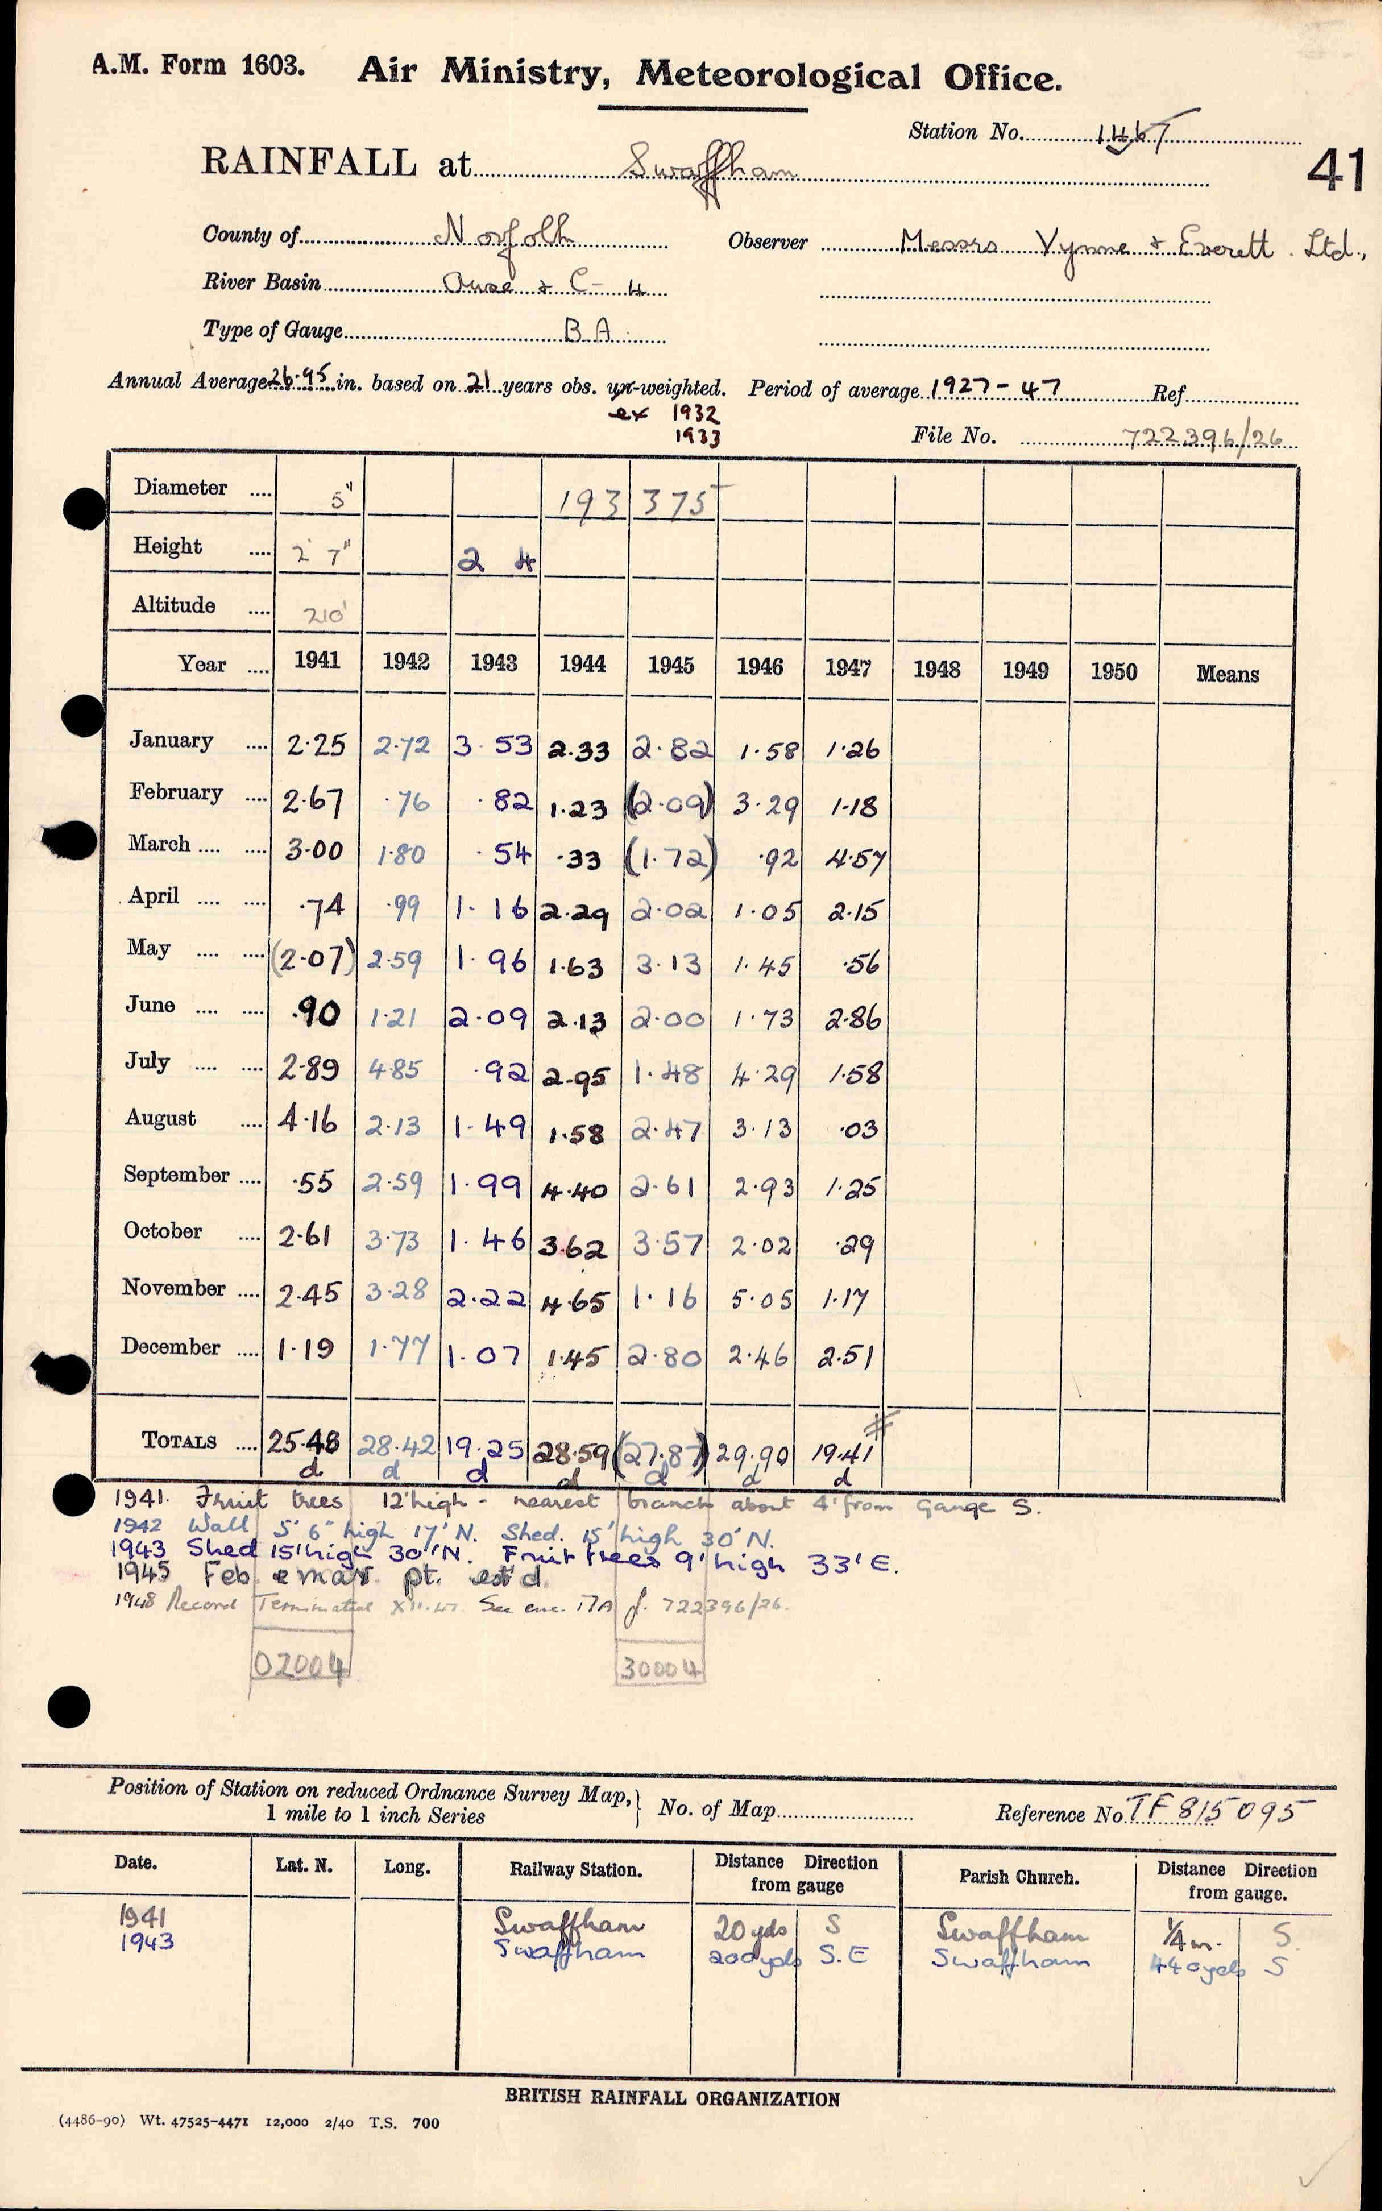 A.M. Form 1603. Air Ministry, Meteorological Office.
Station No.
41
RAINFALL at Swaffham
County of Norfolk Observer Messrs Vynne & Everett. Ltd.,
River Basin Ouse & C- 4
Type of Gauge B.A.
Annual Average 26.95 in. based on 21 years obs. un-weighted. Period of average 1927-47 Ref
ex 1932
1933
File No. 722396/26
Diameter .... 5" 193 375
Height .... 2' 7" 2 4
Altitude .... 210'
Year .... 1941 1942 1943 1944 1945 1946 1947 1948 1949 1950 Means
January .... 2.25 2.72 3.53 2.33 2.82 1.58 1.26
February .... 2.67 .76 .82 1.23 (2.09) 3.29 1.18
March .... .... 3.00 1.80 .54 .33 (1.72) .92 4.57
April .... .... .74 .99 1.16 2.29 2.02 1.05 2.15
May .... .... (2.07) 2.59 1.96 1.63 3.13 1.45 .56
June .... .... .90 1.21 2.09 2.13 2.00 1.73 2.86
July .... .... 2.89 4.85 .92 2.95 1.48 4.29 1.58
August .... 4.16 2.13 1.49 1.58 2.47 3.13 .03
September .... .55 2.59 1.99 4.40 2.61 2.93 1.25
October .... 2.61 3.73 1.46 3.62 3.57 2.02 .29
November .... 2.45 3.28 2.22 4.65 1.16 5.05 1.17
December .... 1.19 1.77 1.07 1.45 2.80 2.46 2.51
TOTALS .... 25.48 28.42 19.25 28.59 (27.87) 29.90 19.41
d d d d d d d
1941. Fruit trees 12' high - nearest branch about 4' from Gauge S.
1942 Wall 5' 6" high 17' N. Shed. 15' high 30' N.
1943 Shed 15' high 30' N. Fruit trees 9' high 33' E.
1945 Feb. & Mar. pt. est'd.
1948 Record Terminated XII.47. See enc. 17A f. 722396/26.
02004 30004
Position of Station on reduced Ordnance Survey Map,
1 mile to 1 inch Series } No. of Map Reference No. TF 815 095
Date. Lat. N. Long. Railway Station. Distance Direction from gauge Parish Church. Distance Direction from gauge.
1941 Swaffham 20 yds S Swaffham 1/4 m. S.
1943 Swaffham 200 yds S.E Swaffham 440 yds S
BRITISH RAINFALL ORGANIZATION
(4486-90) Wt. 47525-4471 12,000 2/40 T.S. 700